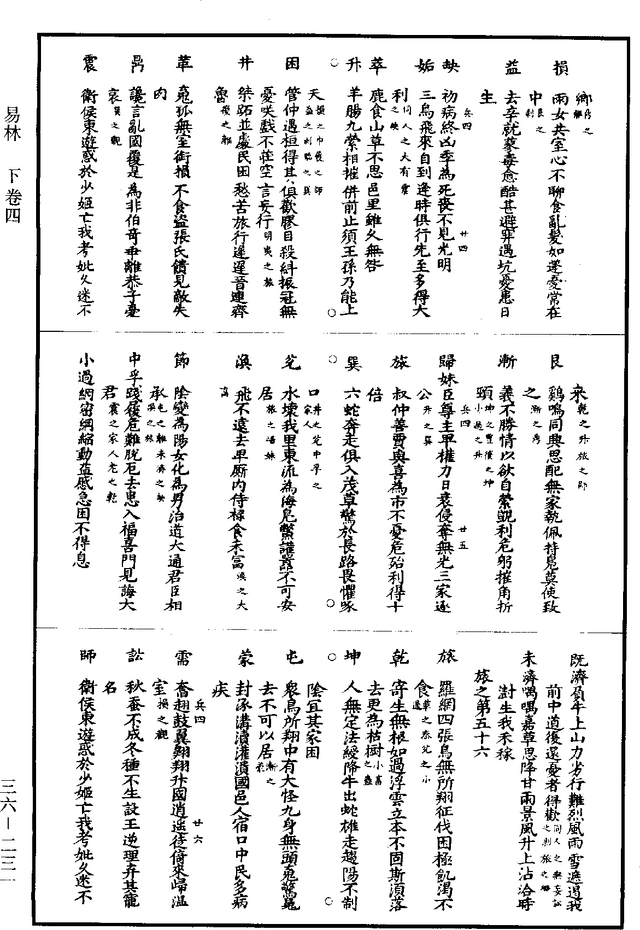 易林 下 卷四
鄉
損 兩女共室心不聊食亂髮如蓬憂常在
中
益 去辛就蓼毒愈酷甚避穽遇坑憂患日
生
夬 初病終凶季為死喪不見光明
姤 三鳥飛來自到逢時俱行先至多得大
利
萃 鹿食山草不思邑里雖久無咎
升 羊腸九縈相摧併前止須王孫乃能上
天
困 管仲遇桓得其俱歡膠目殺糾振冠無
憂咲戲不莊空言妄行 明夷之旅
井 桀跖並處民困愁苦旅行遲遲音連齊
魯
革 鬼狐無室銜損不食盜張氏饋見敵失
肉
鼎 讒言亂國覆是為非伯奇乖離恭子憂
哀
震 衛侯東遊惑於少姬亡我考妣久迷不
來 乾之升
艮 雞鳴同興思配無家執佩持鳧莫使致
之 漸之
漸 義不勝情以欲自縈覬利危躬摧角折
頸
歸妹 臣尊主卑權力日衰侵奪無光三家逐
公 升之巽
旅 叔仲善賈與喜為市不憂危殆利得十
倍
巽 六蛇奔走俱入茂草驚於長路畏懼啄
口
兌 水壞我里東流為海鳧鷖讙囂不可安
居
渙 飛不遠去卑廝內侍祿食未富 渙之大
畜
節 陰變為陽女化為男治道大通君臣相
承
中孚 踐履危難脫厄去患入福喜門見誨大
君 震之家人
小過 網密網縮動益蹙急困不得息
既濟 負牛上山力劣行難烈風雨雪遮遏我
前中道復還憂者得歡
未濟 喁喁嘉草思降甘雨景風升上沾洽時
澍生我禾稼
旅之第五十六
旅 羅網四張鳥無所翔征伐困極飢渴不
食
乾 寄生無根如過浮雲立本不固斯須落
去更為枯樹 小畜之蠱
坤 人無定法緩降牛出蛇雄走趨陽不制
陰宜其家困
屯 眾鳥所翔中有大怪九身無頭鬼驚
去不可以居
蒙 封涿溝瀆灌潰國邑人宿口中民多病
疾
需 奮翅鼓翼翱翔外國逍遙徒倚來歸溫
室 損之觀
訟 秋蠶不成冬種不生設王逆理棄其寵
名
師 衛侯東遊惑於少姬亡我考妣久迷不
三六－二三一